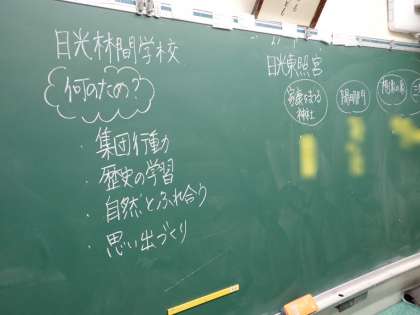 日光林間学校
何のため?
・集団行動
・歴史の学習
・自然とふれ合う
・思い出づくり
日光東照宮
家康をまつる
神社
陽明門